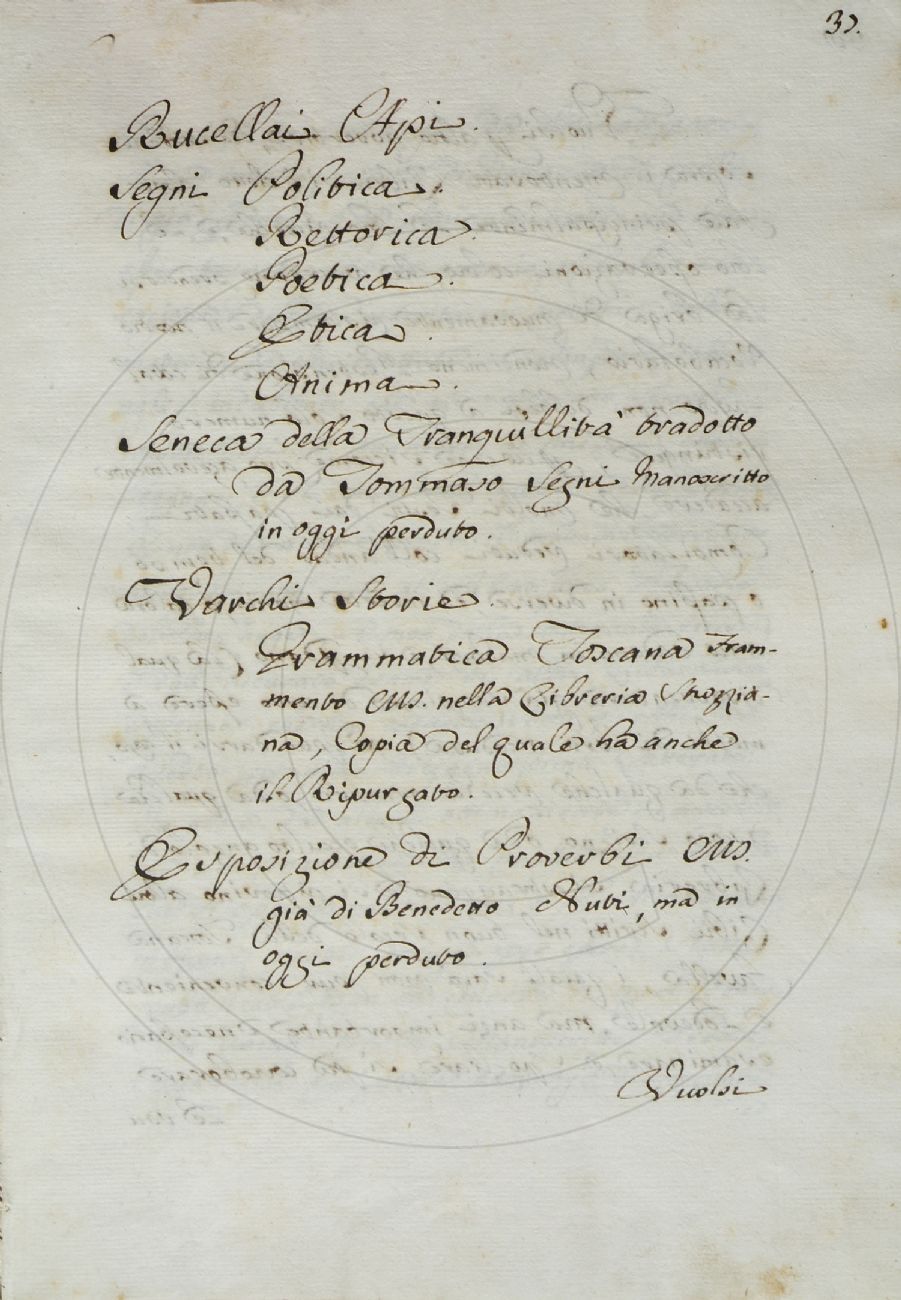 37.
Rucellai Api.
Segni Politica.
Rettorica.
Poetica.
Etica.
Anima.
Seneca della Tranquillità tradotto
da Tommaso Segni Manoscritto
in oggi perduto.
Varchi Storie.
Grammatica Toscana Fram-
mento MS. nella Libreria Strozzia-
na, Copia del quale ha anche
il Ripurgato.
Esposizione di Proverbi MS.
già di Benedetto Nuti, ma in
oggi perduto.
Vuolsi